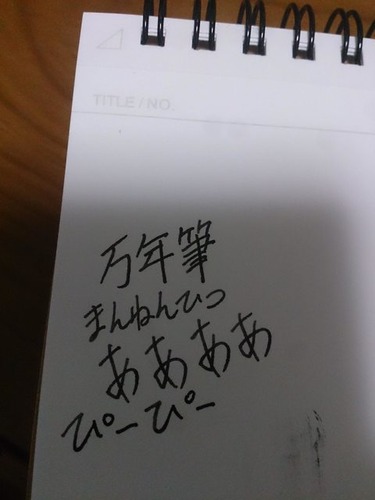 TITLE / NO.
万年筆
まんねんひつ
ああああ
ぴーぴー